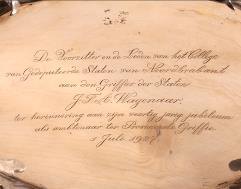 De Voorzitter en de Leden van het College
van Gedeputeerde Staten van Noordbrabant
aan den Griffier der Staten
Wagenaar,
ter herinnering aan zijn veertig jarig jubileum
als ambtenaar ter Provinciale Griffie.
1 Juli 1927.